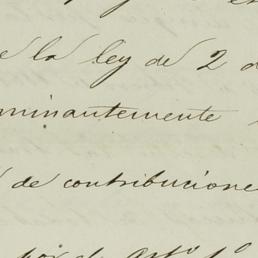 e la ley de 2 d
minantemente
de contribucione
por el artº 1º